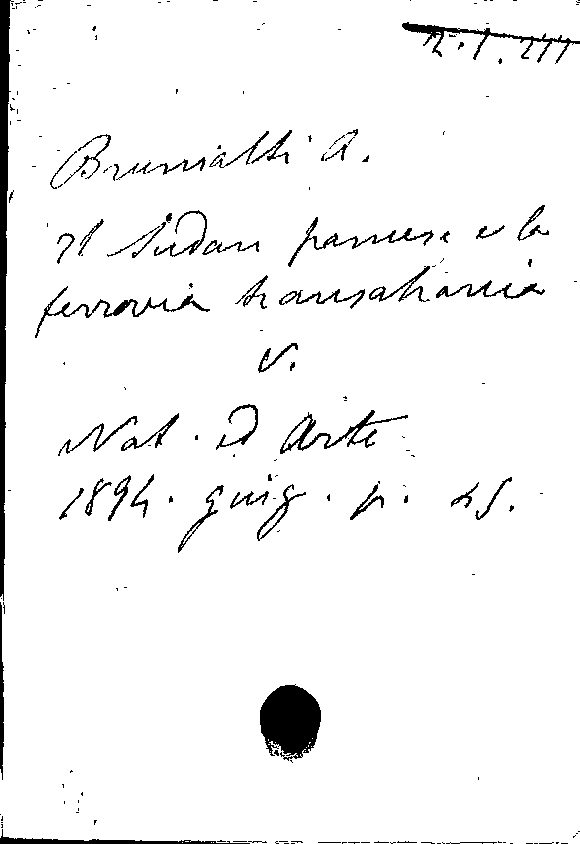 2.1.277
Brunialti A.
Il Sudan francese e la
ferrovia transahariana
v.
Nat. ed Arte
1894. giug. p. 45.